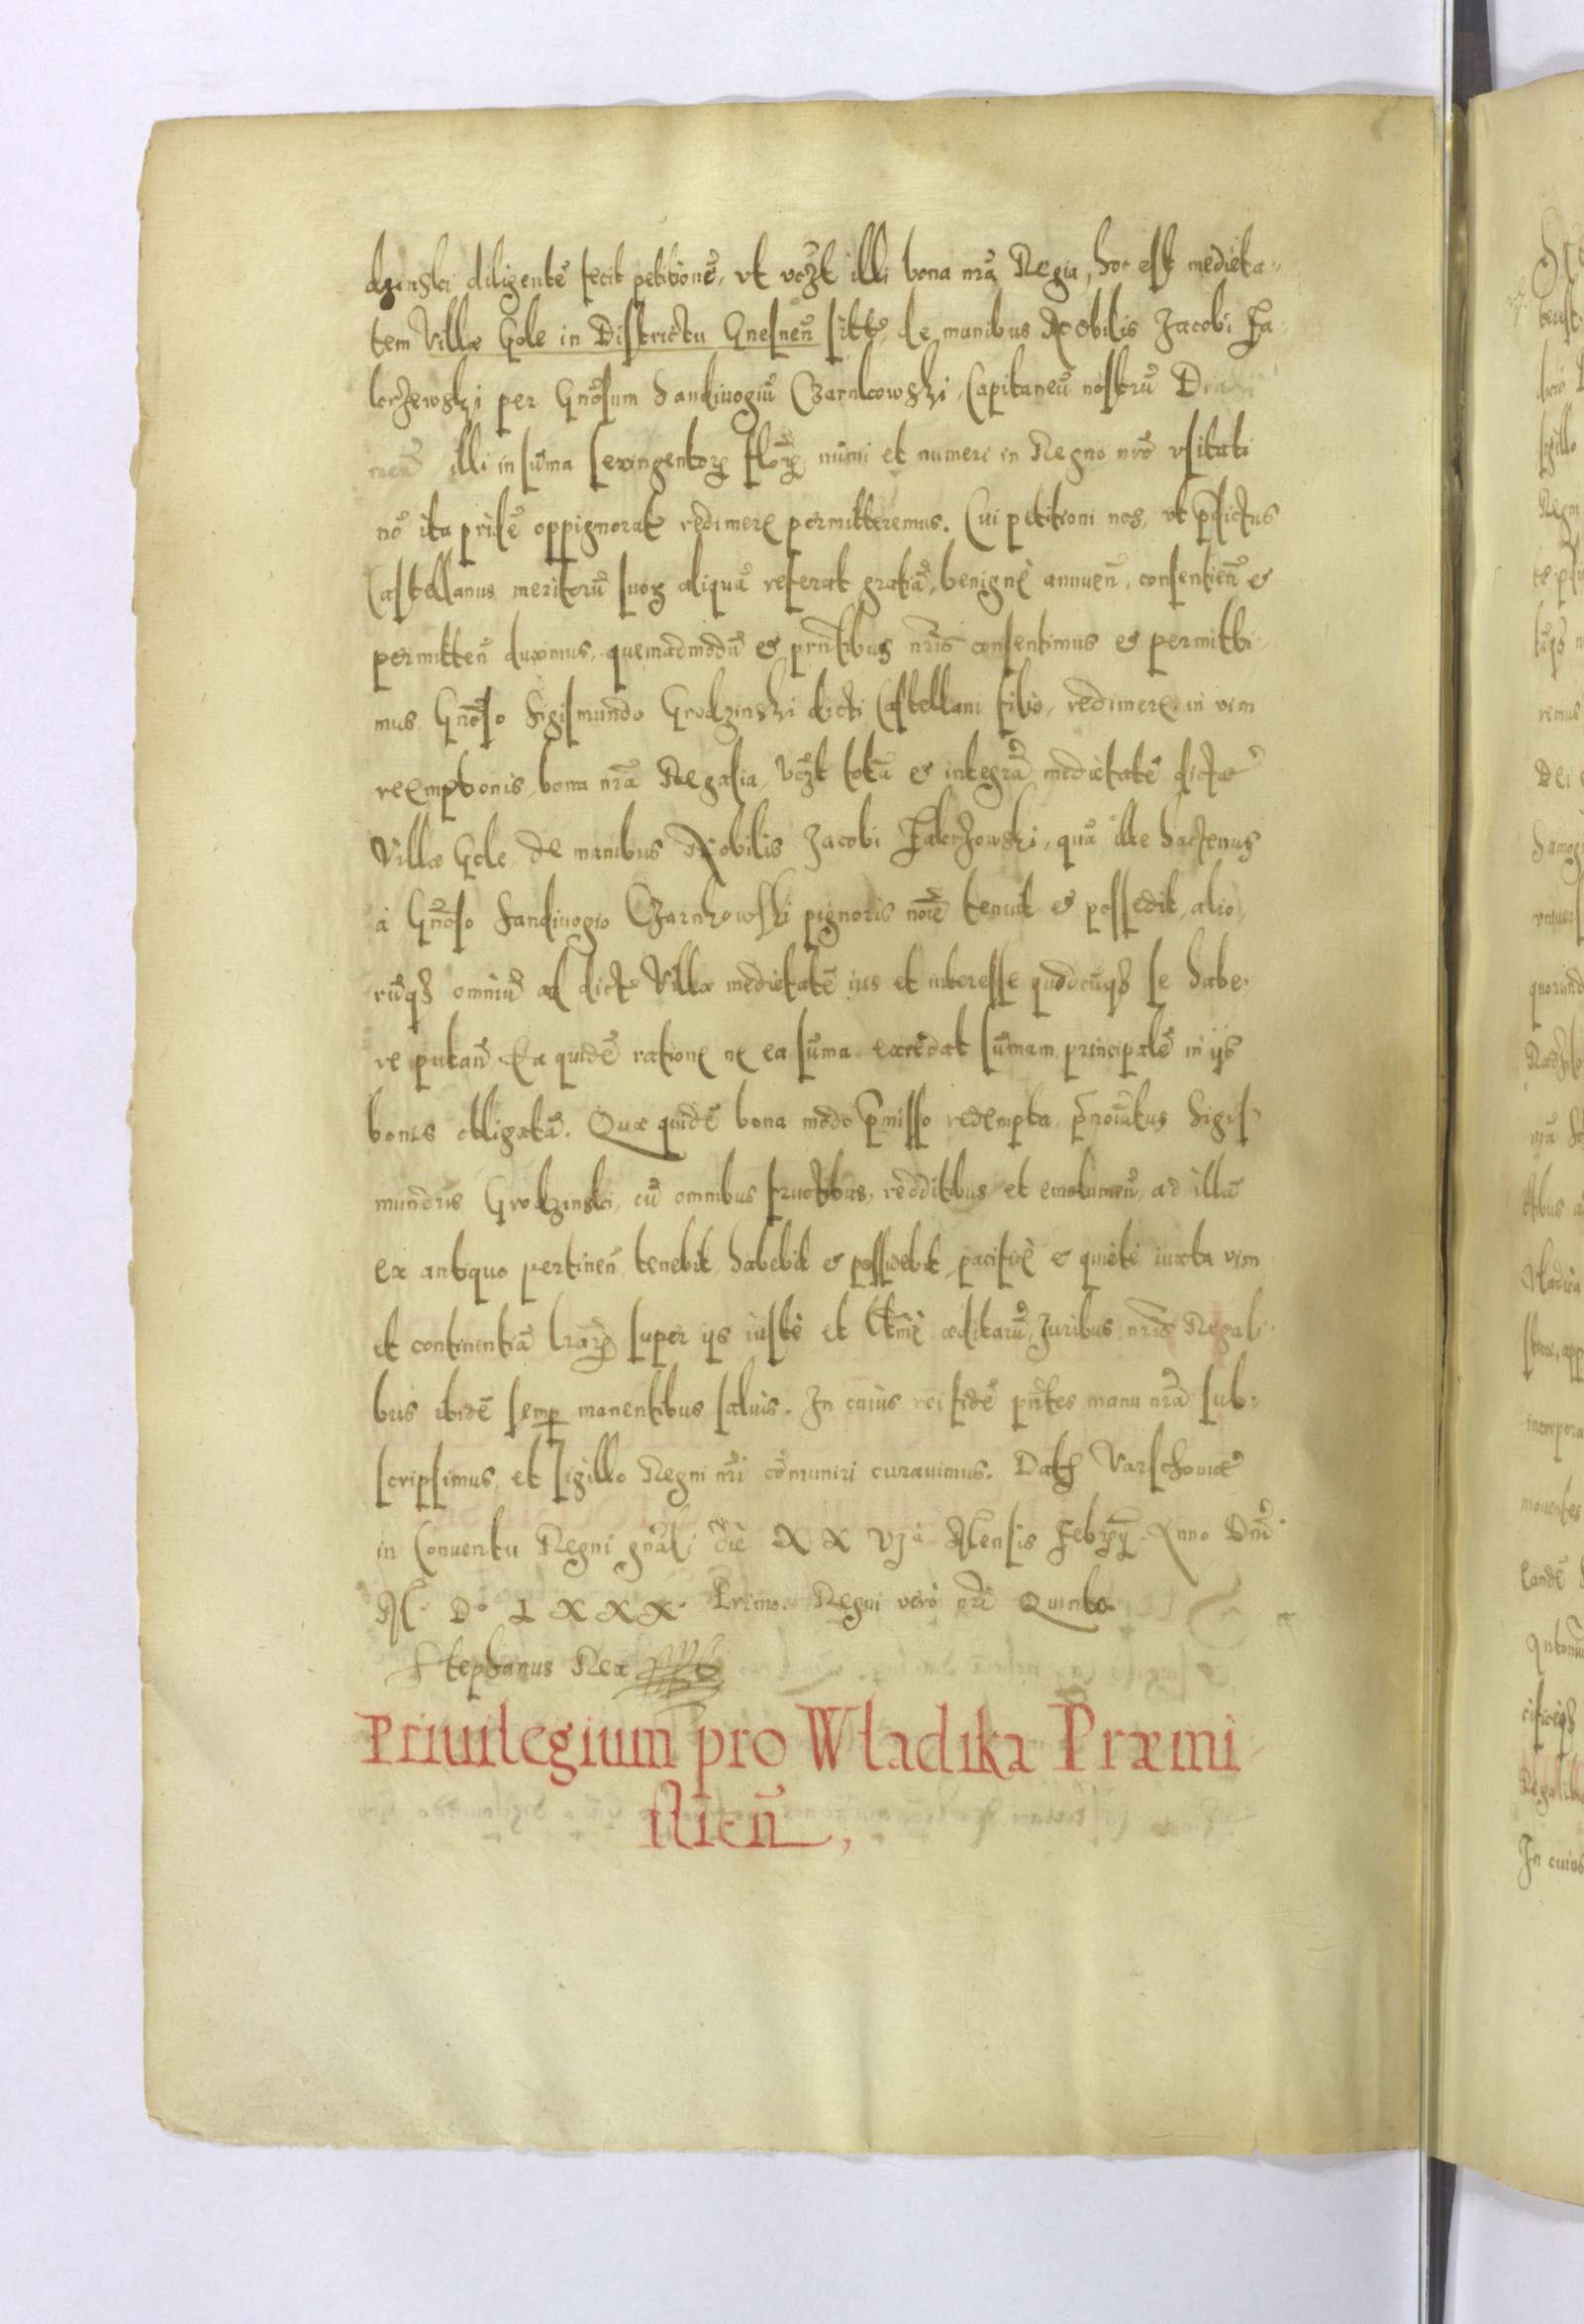 dzinski diligentē fecit petitionē, vt vczt illi bona nrā Regia, hoc est medieta-
tem Villæ Gole in Districtu Gnesnen̄ sitæ, de manibus Nobilis Jacobi Fa-
lerzewski per Gnōsum Sandiuogiū Czarnkowski, Capitaneū nostrū Drahi
men̄ illi in sūma sexingentorꝝ florꝝ, nūmi et numeri in Regno nrō vsitati
nō ita pridē oppignorat redimere permitteremus. Cui petitioni nos, vt p̄dictus
Castellanus meritorū suorꝝ aliquā referat gratiā, benignè annuen̄, consentien̄ et
permitten̄ duximus, quemadmodū et prn̄tibus nr̄is consentimus et permitti-
mus Gnōso Sigismundo Grodzinski dicti Castellani filio, redimere in vim
reemptionis, bona nrā Regalia, vczt totā et integrā medietatē dictæ
Villæ Gole, de manibus Nobilis Jacobi Falerzowski, quā ille hactenus
à Gnōso Sandiuogio Czarnkowski pignoris noīe tenuit et possedit, alio-
rūqꝫ omniū ad dictæ Villæ medietatē ius et interesse quodcūqꝫ se habe-
re putan̄ Ea quidē ratione ne ea sūma excedat sūmam principalē in ijs
bonis obligatā. Quæ quidē bona modo p̄misso redempta, p̄noīatus Sigis-
mundus Grodzinski, cū omnibus fructibus, redditibus et emolumen̄ ad illā
ex antiquo pertinen̄ tenebit, habebit et possidebit, pacificè et quietè iuxta vim
et continentiā lrārꝝ super ijs iustè et lt̄mè æditarū, Juribus nr̄is Regali-
bus ibidē semꝑ manentibus saluis. In cuius rei fidē pn̄tes manu nrā sub-
scripsimus, et sigillo Regni nrī cōmuniri curauimus. Datꝫ Varschouiæ
in Conuentu Regni gnāli die XXVJa Mensis Febrꝝ Anno Dn̄i
M. D. LXXX Primo. Regni verò nrī Quinto
Stephanus Rex
Priuilegium pro Władika Præmi-
slien̄,